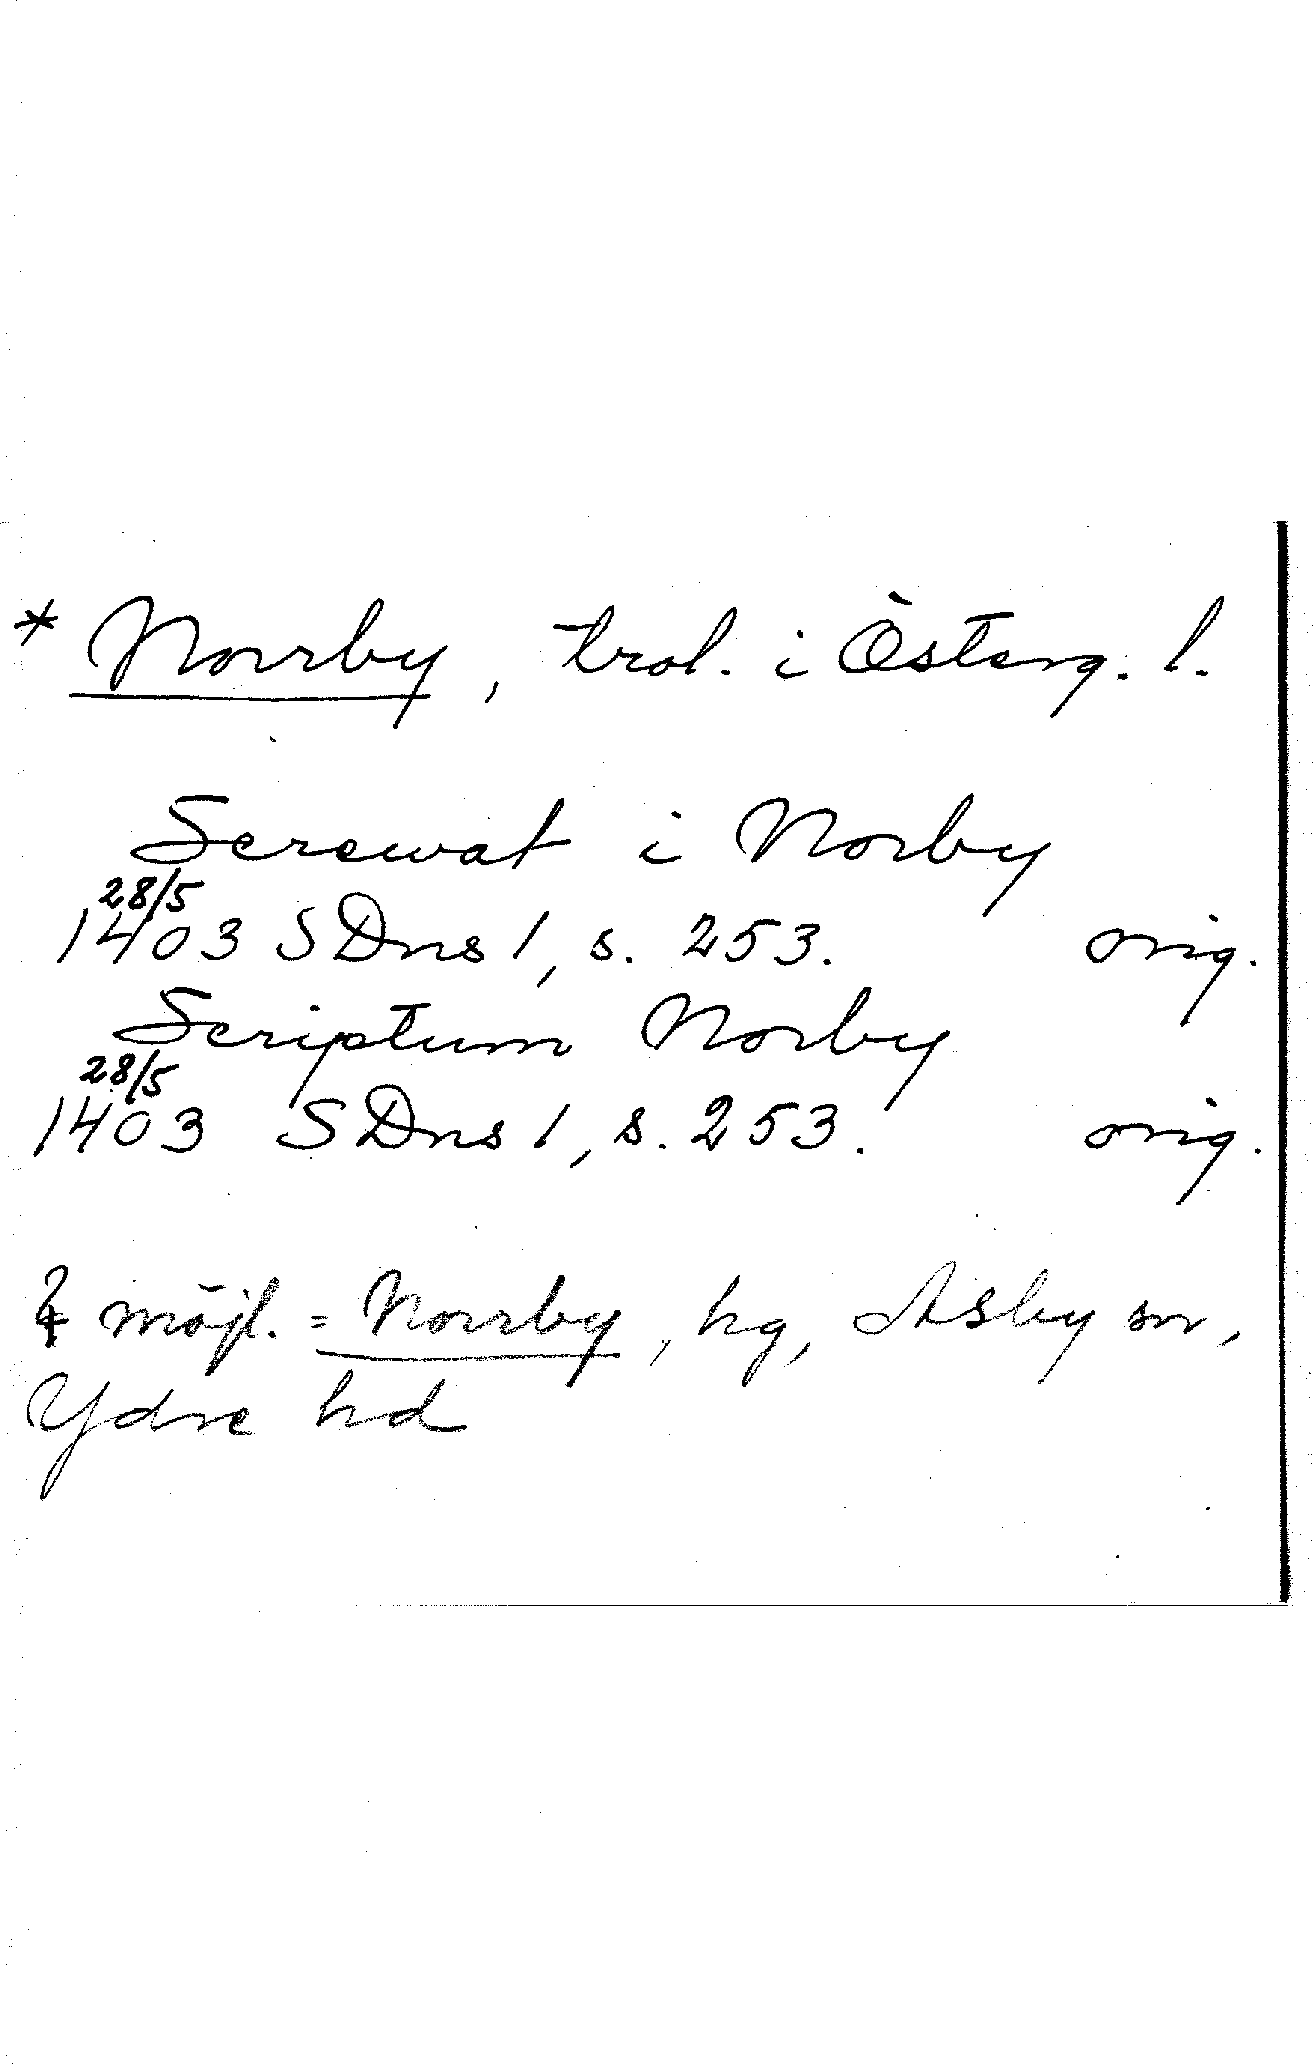 * Norrby, trol. i Österg. l.
Screwat i Norby
28/5
1403 SDns 1, s. 253. orig.
Scriptum Norby
28/5
1403 SDns 1, s. 253. orig.
möjl. = Norrby, hg, Asby sn,
Ydre hd